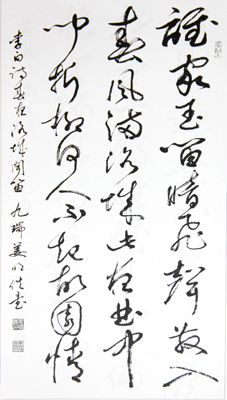 誰家玉笛暗飛聲散入
春風滿洛城此夜曲中
聞折柳何人不起故園情
李白詩春夜洛城聞笛 九瑞姜